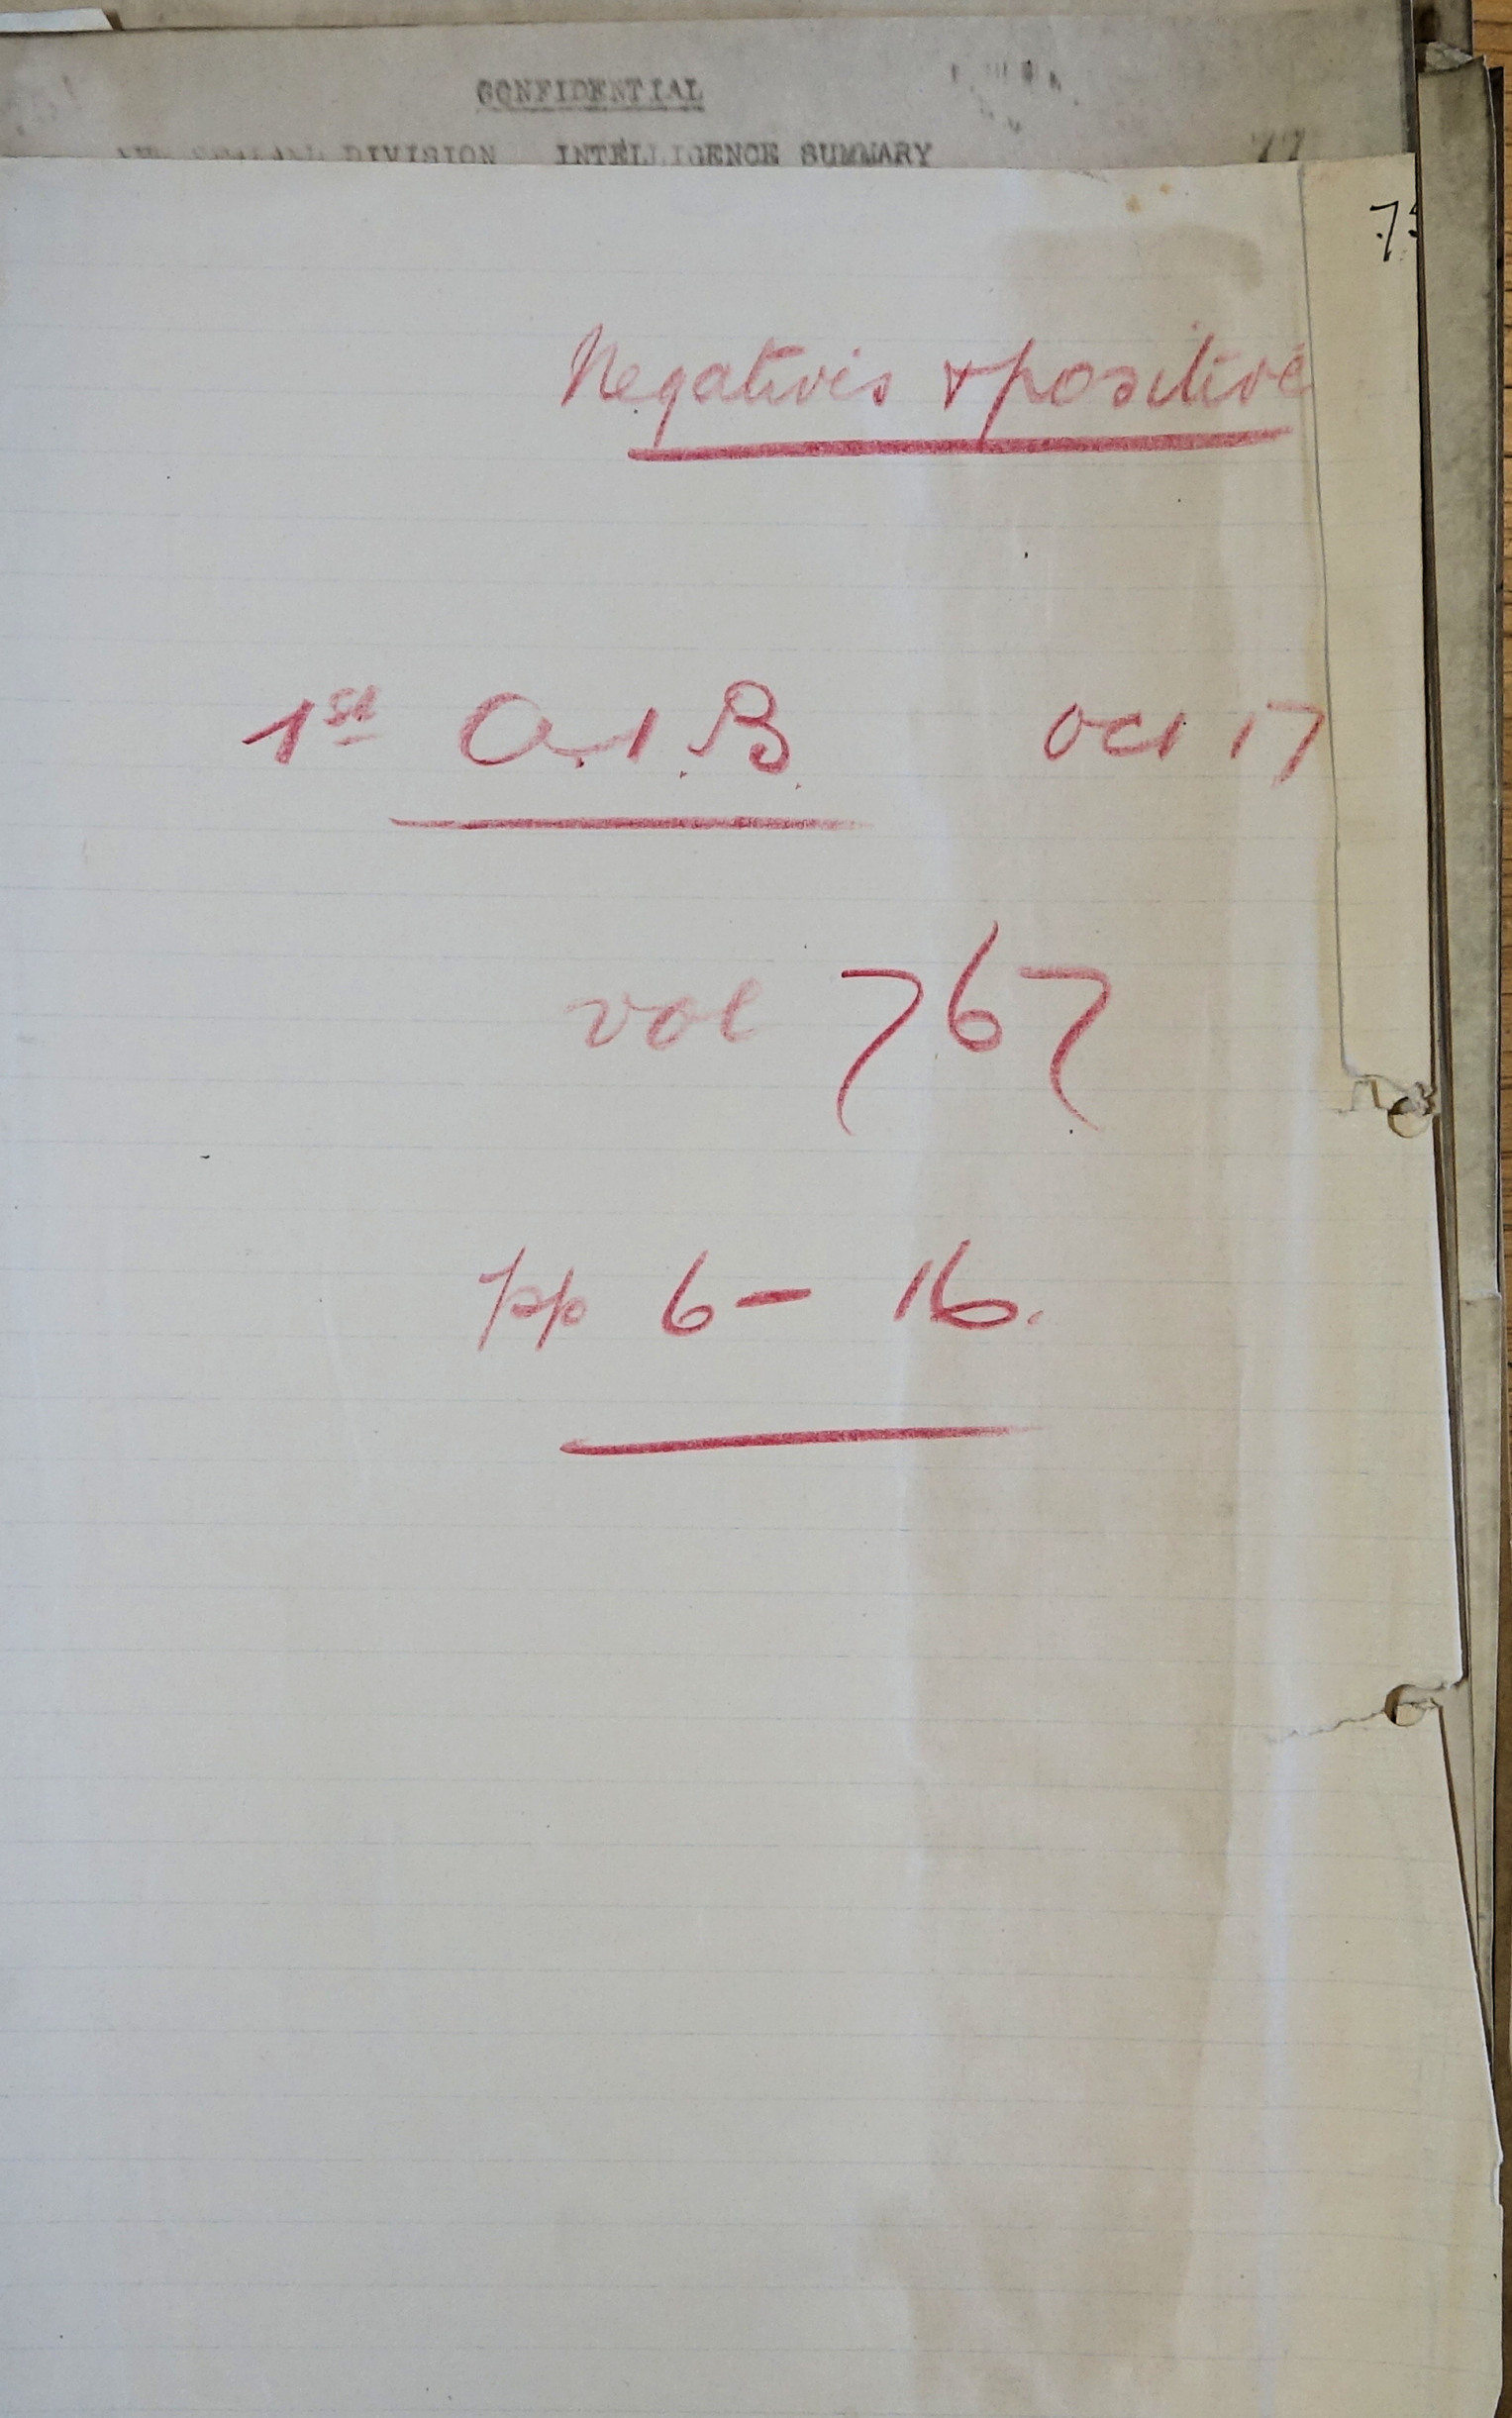 CONFIDENTIAL
DIVISION INTELLIGENCE SUMMARY
77
Negatives & positive
1st A.I.B. Oct 17
vol 767
pp 6 - 16.